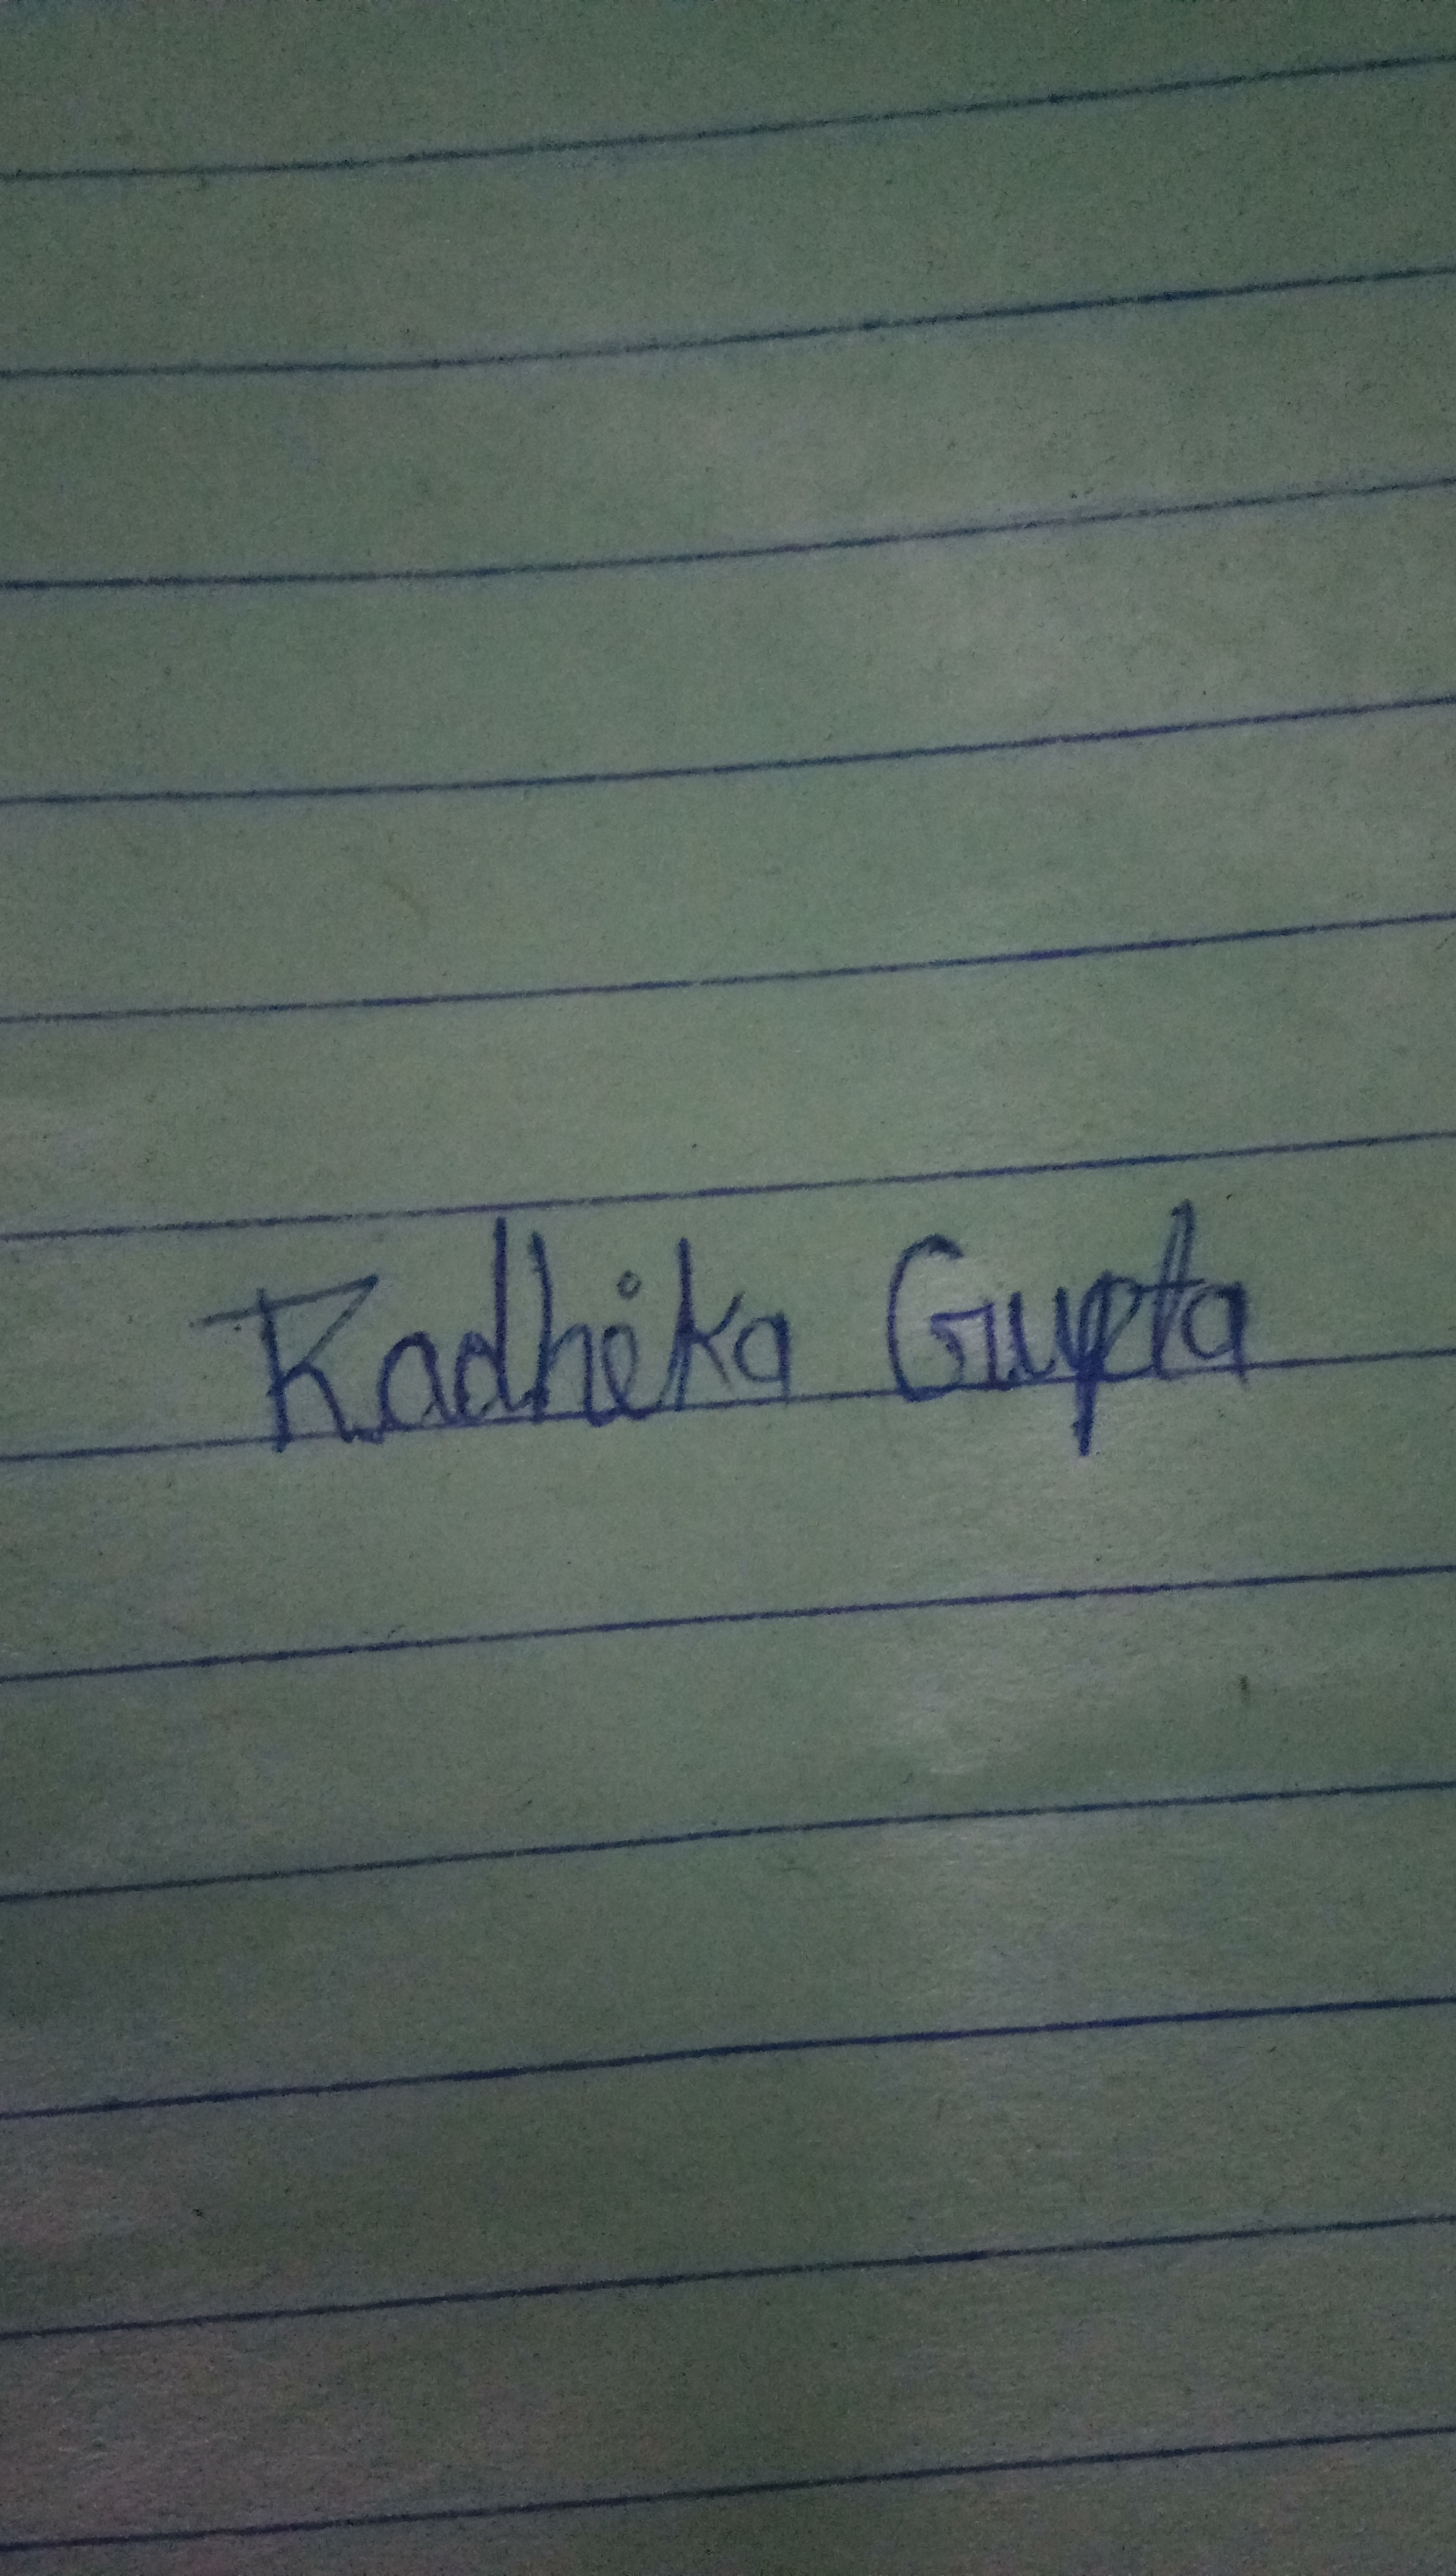 Radhika Gupta